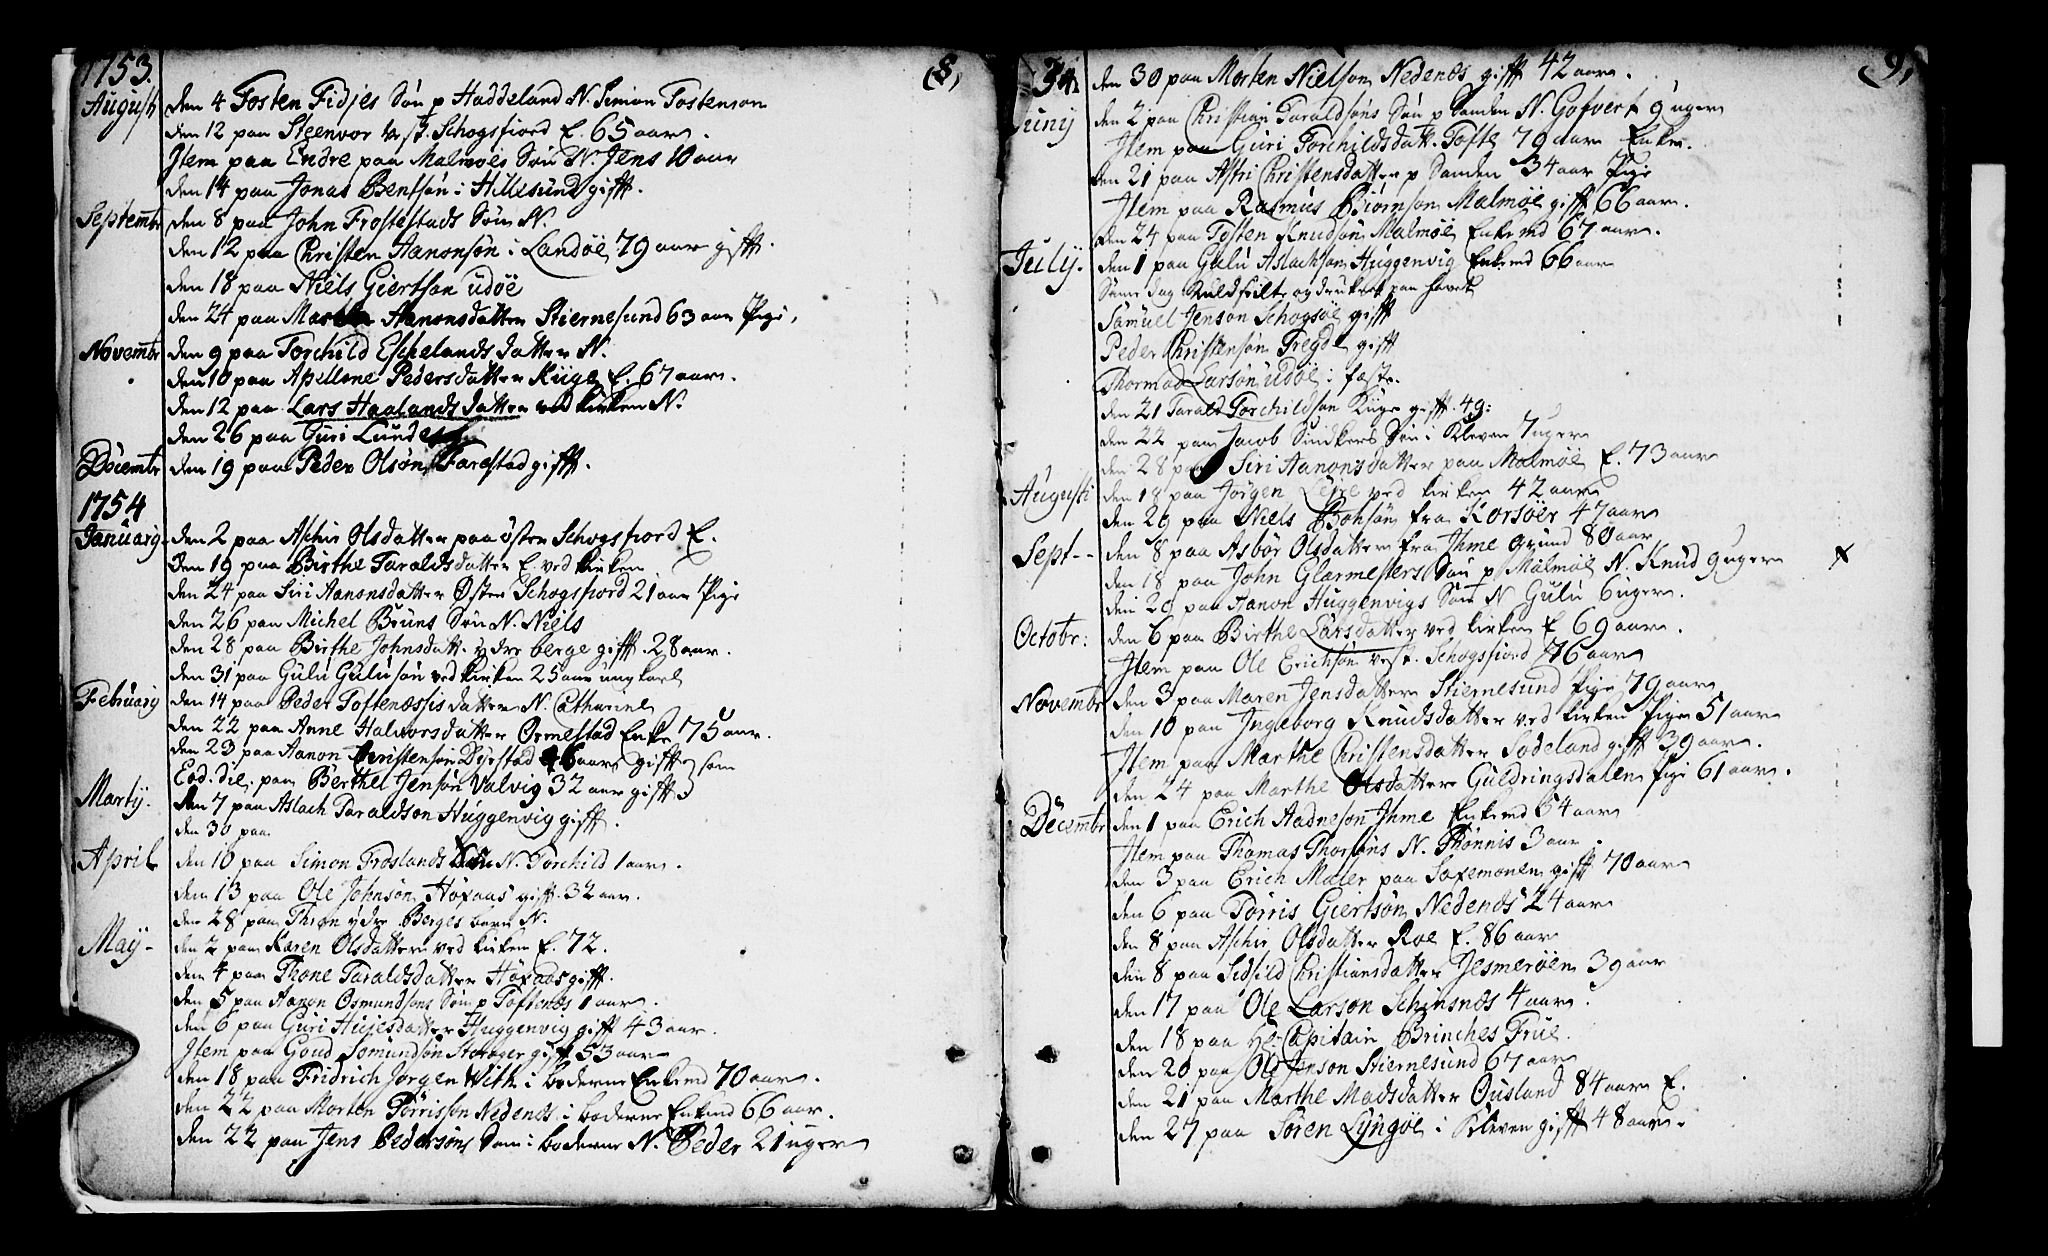 1753. (8,
Augusti den 4 Tosten Fidjes Søn p Haddeland N. Simon Tostenson
den 12 paa Steenvor Schogsfiord E. 65 aar.
Item paa Endre paa Malmøes Søn N. Jens 10 aar
den 14 paa Jonas Bentsøn i Hillesund gifft.
Septembr den 8 paa John Frostestads Søn N.
den 12 paa Christen Aanonsøn i Landøe 79 aar gifft.
den 18 paa Niels Giertson udøe
den 24 paa Aanonsdatter Stiernesund 63 aar Pige,
Novembr den 9 paa Torchild Eschelands datter N.
den 10 paa Apellone Pedersdatter Kiige E. 67 aar.
den 12 paa Lars Haalands datter ved kirken N.
den 26 paa Guri Lunde
Decembr den 19 paa Peder Olsøn Farestad gifft.
1754
Januarij den 2 paa Aschir Olsdatter paa øster Schogsfiord E.
den 19 paa Birthe Taraldsdatter E. ved kirken
den 24 paa Siri Aanonsdatter Øster Schogsfiord 21 aar Pige
den 26 paa Michel Bruns Søn N. Niels
den 28 paa Birthe Johnsdatt. ydre berge gifft. 28 aar.
den 31 paa Gulu Gulusøn ved kirken 25 aar ungkarl
Februarij den 14 paa Peder Toftenessis datter N. Cathrine
den 22 paa Anne Halvorsdatter Ormestad Enke 75 aar.
den 23 paa Aanon Christensøn Dyrstad 46 aar gifft som
Eod. die, paa Berthel Jensøn Valvig 32 aar gifft
Martij. den 7 paa Aslach Taraldson Huggenvig gifft.
den 30 paa
April den 10 paa Simon Froslands Søn N. Torchild 1 aar.
den 13 paa Ole Johnsøn Høxaas gifft. 32 aar.
den 28 paa Thron ydre Berges barn N.
Maij- den 2 paa Karen Olsdatter ved kirken E. 72.
den 4 paa Thone Taraldsdatter Høxaas gifft.
den 5 paa Aanon Osmundsøns Søn p Toftenes 1 aar.
den 6 paa Guri Hujesdatter Huggenvig gifft 43 aar.
Item paa Goud Somundsøn Storager gifft 53 aar
den 18 paa Fridrich Jørgen With i boderne Enkemd 70 aar.
den 22 paa Morten Pørrisson Nedenes i boderne Enkmd 66 aar.
den 22 paa Jens Pedersøns Søn i boderne N. Peder 21 uger
(9,
den 30 paa Morten Nielson Nedenes gifft 42 aar.
Junij den 2 paa Christian Taraldsøns Søn p Sanden N. Gofvert 9 uger
Item paa Guri Torchildsdatt. Tofte 79 aar Enke.
den 21 paa Astri Christensdatter p Sanden 34 aar Pige
Item paa Rasmus Biørnson Malmøe gifft 66 aar.
den 24 paa Tosten Knudsøn Malmøe Enkemd 67 aar.
Julij. den 1 paa Gulu Aslachson Huggenvig Enkemd 66 aar
Same dag Kuldseilte og druknet paa havet
Samuel Jenson Schogsøe gifft
Peder Christensøn Tregde gifft
Thormod Larsøn udøe i fæste.
den 21 Tarald Torchildsøn Kiige gifft. 49:
den 22 paa Jacob Sindkers Søn i Kleven 7 uger
den 28 paa Siri Aanonsdatter paa Malmøe E. 73 aar
Augusti den 18 paa Jørgen Leire ved kirken 42 aar
den 29 paa Niels Bohsøn fra Korsøer 47 aar
Sept-- den 8 paa Asbør Olsdatter fra Ihme grund 80 aar
den 18 paa John Glarmesters Søn p Malmøe N. Knud 9 uger x
den 20 paa Aanon Huggenvigs Søn N Gulu 6 uger.
Octobr: den 6 paa Birthe Larsdatter ved kirken E 69 aar.
Item paa Ole Erichsøn vest. Schogsfiord 76 aar
Novembr den 3 paa Maren Jensdatter Stiernesund Pige 79 aar
den 10 paa Ingeborg Knudsdatter ved kirken Pige 51 aar
Item paa Marthe Christensdatter Sodeland gifft 39 aar.
den 24 paa Marthe Olsdatter Guldringsdalen Pige 61 aar.
Decembr den 1 paa Erich Aadneson Ihme Enkemd 64 aar
Item paa Thomas Thorsøns N. Thønnis 3 aar.
den 3 paa Erich Maler paa Saxemonen gifft 70 aar
den 6 paa Tørris Giertsøn Nedenes 24 aar
den 8 paa Aschir Olsdatter Roe E. 86 aar
den 8 paa Sidsild Christiansdatter Jesmerøen 39 aar
den 17 paa Ole Larson Schinsnes 4 aar.
den 18 paa Hr. Capitain Brinches Frue.
den 20 paa Ole Jenson Stiernesund 67 aar
den 21 paa Marthe Madsdatter Ousland 84 aar E.
den 27 paa Søren Lyngøe i Kleven gifft 48 aar.